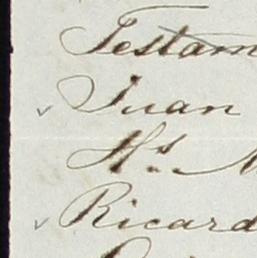 Testam
Juan
Hs. M
Ricard